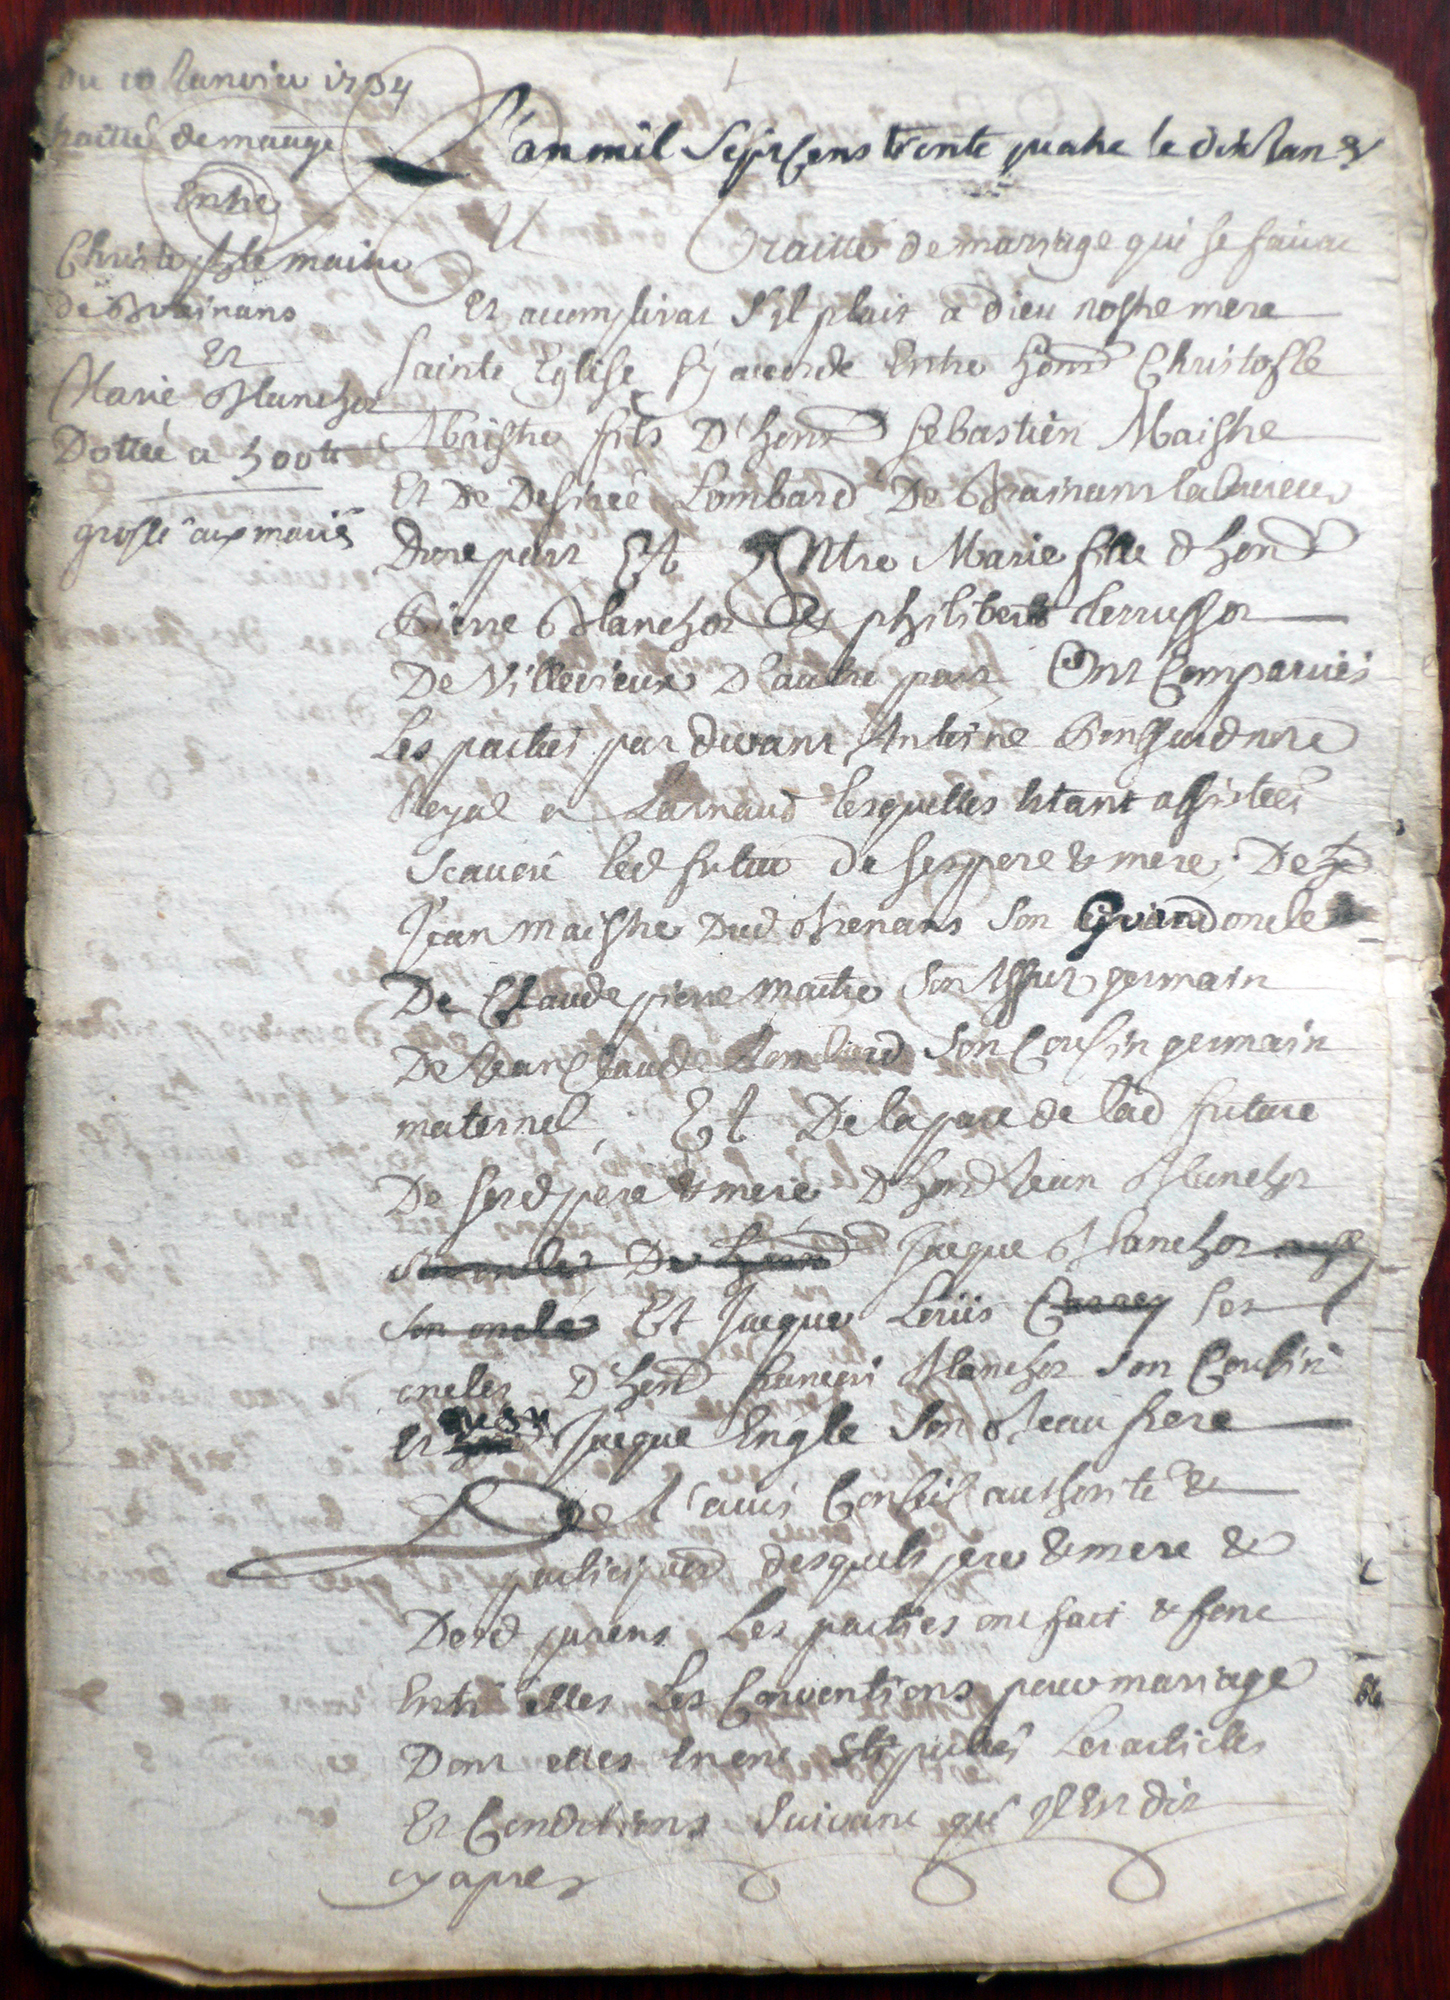 du 10 Janvier 1734
traitté de mariage
Entre
Christofle maitre
de Brainans
Et
Marie Blanchot
Dottée a 500tt
grosse aux mariés
L'an mil Sept Cens trente quatre le dix Janer
Traitté de mariage qui se faira
Et acomplirat S'il plait a dieu nostre mere
Sainte Eglise S'y acorde Entre hond Christofle
Maistre fils D'hond Sebastien Maistre
Et De Desirée Lombard De Brainans laboureur
Dune part Et Entre Marie fille d'hond
Pierre Blanchot & philiberte
De Villevieux D'autre part, Ont Comparues
Les parties par devant Antoine nore
Royal a Larnaud lesquelles Etant assistées
Scavoir led futur de ses pere & mere, De
Jean Maistre Dud Brenans Son Grand oncle
De Claude pierre maitre Son germain
De Jean Claude Lombard Son Cousin germain
maternel, Et De la part de lad future
De sesd pere & mere D'hond Jean Blanchot
Son oncle De hond Jacque Blanchot
Son oncle Et Jacque Louis Carrey ses
oncles D'hond francois Blanchot Son Cousin
Et Jacque Engle Son Beau frere
De L'avis Conseil authorité &
desquels pere & mere &
Desd parens Les parties ont fait & font
Entr'elles Les Conventions pour mariage
Dont elles En ont Stipulés Les articles
Et Conditions Suivant qu'il Est dit
cy apres